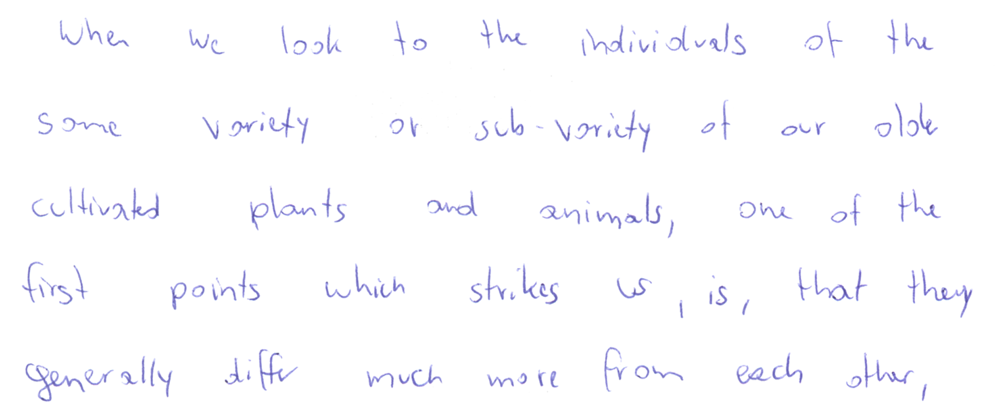 When we look to the individuals of the
same variety or sub-variety of our olde
cultivated plants and animals, one of the
first points which strikes us, is, that they
generally differ much more from each other,